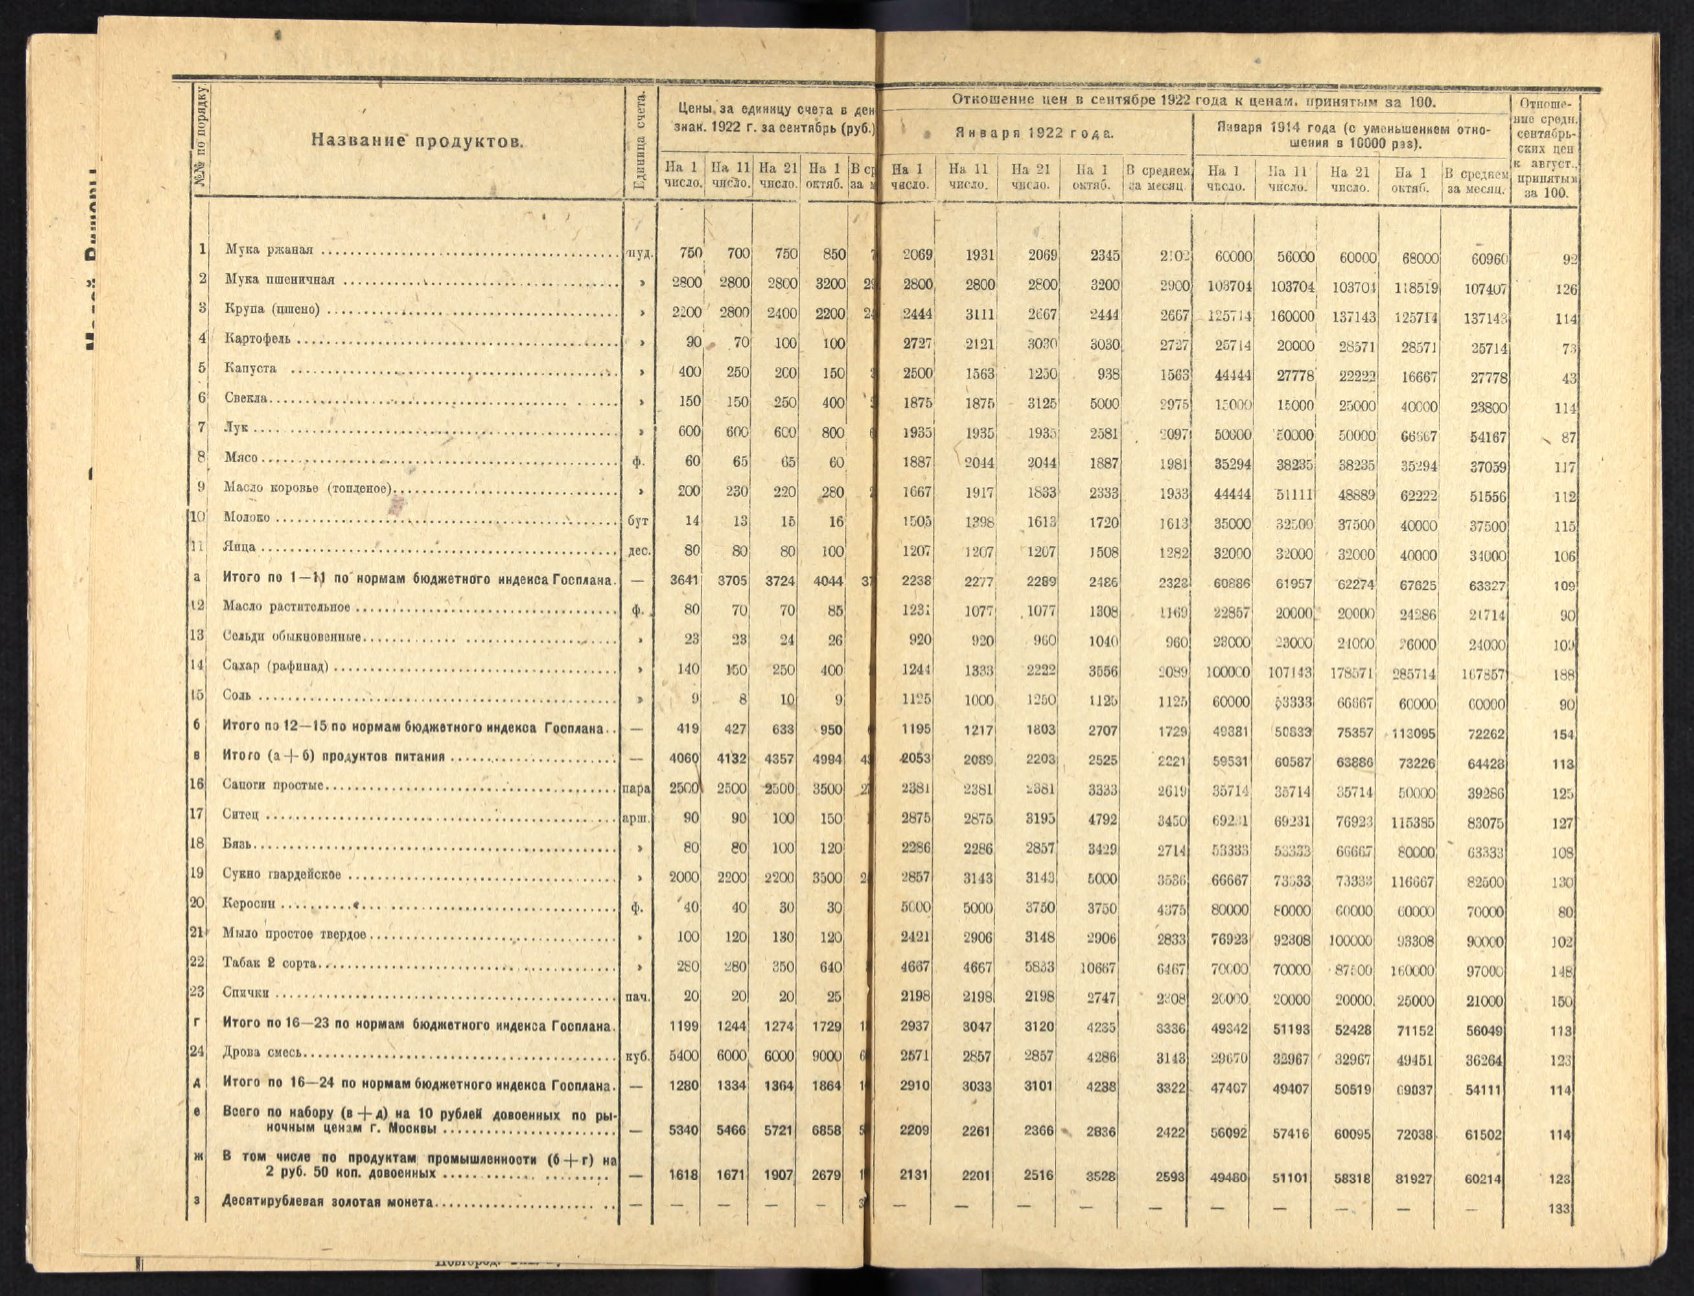 №№ по порядку.
Название продуктов.
Единица счета.
Цены за единицу счета в ден
знак. 1922 г. за сентябрь (руб.)
На 1 число. На 11 число. На 21 число. На 1 октяб. В ср за м
Отношение цен в сентябре 1922 года к ценам, принятым за 100.
Января 1922 года.
На 1 число. На 11 число. На 21 число. На 1 октяб. В среднем за месяц.
Января 1914 года (с уменьшением отно-
шения в 10000 раз).
На 1 число. На 11 число. На 21 число. На 1 октяб. В среднем за месяц.
Отноше-
ние средн.
сентябрь-
ских цен
к август.,
принятым
за 100.
1 Мука ржаная пуд. 750 700 750 850 7 2069 1931 2069 2345 2102 60000 56000 60000 68000 60960 92
2 Мука пшеничная » 2800 2800 2800 3200 29 2800 2800 2800 3200 2900 103704 103704 103704 118519 107407 126
3 Крупа (пшено) » 2200 2800 2400 2200 24 2444 3111 2667 2444 2667 125714 160000 137143 125714 137143 114
4 Картофель » 90 70 100 100 2727 2121 3030 3030 2727 25714 20000 28571 28571 25714 73
5 Капуста » 400 250 200 150 2500 1563 1250 938 1563 44444 27778 22222 16667 27778 43
6 Свекла » 150 150 250 400 1875 1875 3125 5000 2975 15000 15000 25000 40000 23800 114
7 Лук » 600 600 600 800 6 1935 1935 1935 2581 2097 50000 50000 50000 66667 54167 87
8 Мясо ф. 60 65 65 60 1887 2044 2044 1887 1981 35294 38235 38235 35294 37059 117
9 Масло коровье (топленое) » 200 230 220 280 2 1667 1917 1833 2333 1933 44444 51111 48889 62222 51556 112
10 Молоко бут 14 13 15 16 1505 1398 1613 1720 1613 35000 32500 37500 40000 37500 115
11 Яйца дес. 80 80 80 100 1207 1207 1207 1508 1282 32000 32000 32000 40000 34000 106
а Итого по 1—11 по нормам бюджетного индекса Госплана. — 3641 3705 3724 4044 37 2238 2277 2289 2486 2328 60886 61957 62274 67625 63327 109
12 Масло растительное ф. 80 70 70 85 1231 1077 1077 1308 1169 22857 20000 20000 24286 21714 90
13 Сельди обыкновенные » 23 23 24 26 920 920 960 1040 960 23000 23000 24000 26000 24000 109
14 Сахар (рафинад) » 140 150 250 400 1244 1333 2222 3556 2089 100000 107143 178571 285714 167857 188
15 Соль » 9 8 10 9 1125 1000 1250 1125 1125 60000 53333 66667 60000 60000 90
б Итого по 12—15 по нормам бюджетного индекса Госплана. — 419 427 633 950 1195 1217 1803 2707 1729 49881 50833 75357 113095 72262 154
в Итого (а+б) продуктов питания — 4060 4132 4357 4994 43 2053 2089 2203 2525 2221 59531 60587 63886 73226 64428 113
16 Сапоги простые пара 2500 2500 2500 3500 27 2381 2381 2381 3333 2619 35714 35714 35714 50000 39286 125
17 Ситец арш. 90 90 100 150 2875 2875 3195 4792 3450 69231 69231 76923 115385 83075 127
18 Бязь » 80 80 100 120 2286 2286 2857 3429 2714 53333 53333 66667 80000 63333 108
19 Сукно гвардейское » 2000 2200 2200 3500 2 2857 3143 3143 5000 3536 66667 73333 73333 116667 82500 130
20 Керосин ф. 40 40 30 30 5000 5000 3750 3750 4375 80000 80000 60000 60000 70000 80
21 Мыло простое твердое » 100 120 130 120 2421 2906 3148 2906 2833 76923 92308 100000 93308 90000 102
22 Табак 2 сорта » 280 280 350 640 4667 4667 5833 10667 6467 70000 70000 87500 160000 97000 148
23 Спички пач. 20 20 20 25 2198 2198 2198 2747 2308 20000 20000 20000 25000 21000 150
г Итого по 16—23 по нормам бюджетного индекса Госплана. 1199 1244 1274 1729 1 2937 3047 3120 4235 3336 49342 51193 52428 71152 56049 113
24 Дрова смесь куб. 5400 6000 6000 9000 6 2571 2857 2857 4286 3143 29670 32967 32967 49451 36264 123
д Итого по 16—24 по нормам бюджетного индекса Госплана. — 1280 1334 1364 1864 1 2910 3033 3101 4238 3322 47407 49407 50519 69037 54111 114
е Всего по набору (в+д) на 10 рублей довоенных по ры-
ночным ценам г. Москвы — 5340 5466 5721 6858 5 2209 2261 2366 2836 2422 56092 57416 60095 72038 61502 114
ж В том числе по продуктам промышленности (б+г) на
2 руб. 50 коп. довоенных — 1618 1671 1907 2679 1 2131 2201 2516 3528 2593 49480 51101 58318 81927 60214 123
з Десятирублевая золотая монета — — — — — 3 — — — — — — — — — — 133